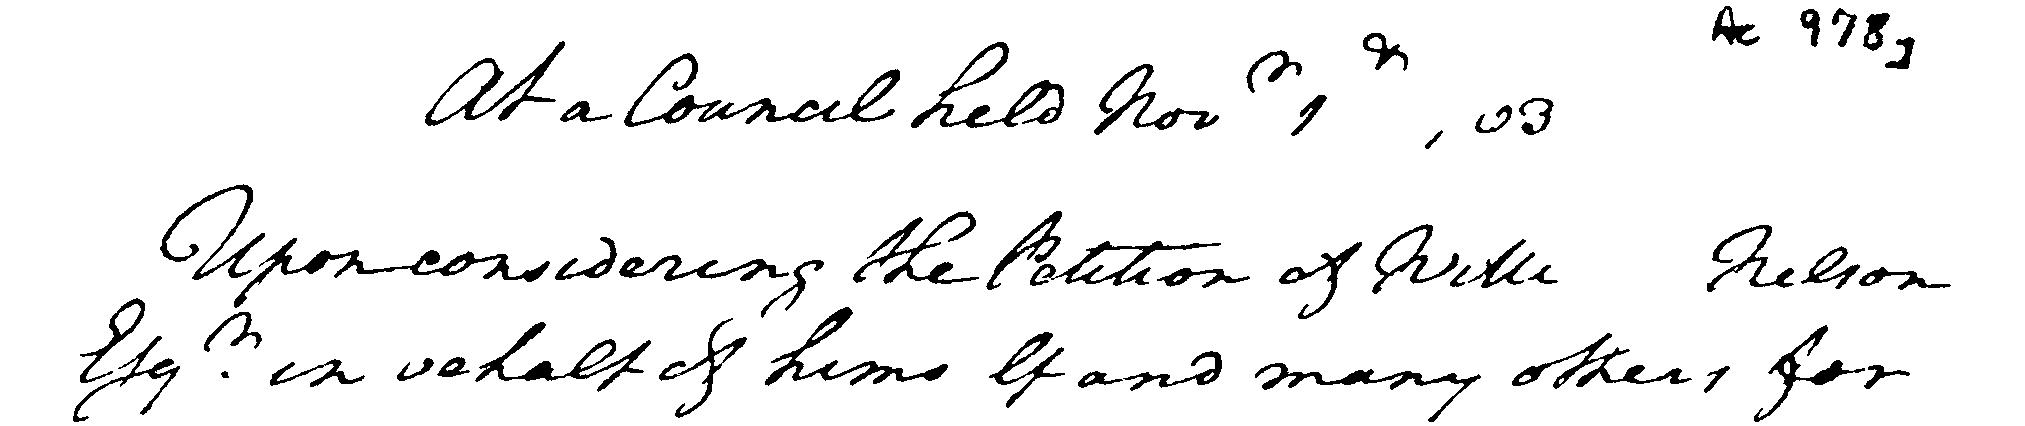 Ac 978
At a Council held Novr 1st, 03
Upon considering the Petition of Will Nelson
Esqr. in behalf of himself and many others for